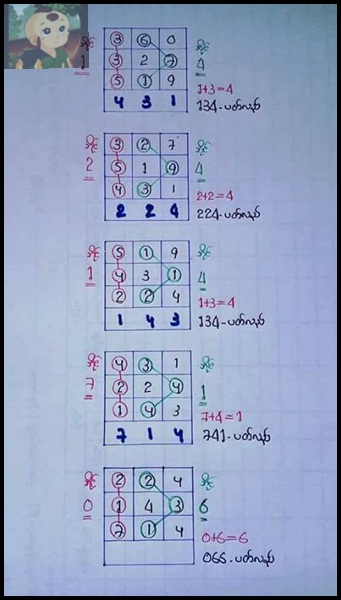 3 6 0
1 3 2 7 4
5 1 9 1+3=4
4 3 1 134-ပတ်လည်
3 2 7
2 5 1 9 4
4 3 1 2+2=4
2 2 4 224-ပတ်လည်
5 1 9
1 4 3 1 4
2 2 4 1+3=4
1 4 3 134-ပတ်လည်
4 3 1
7 2 2 4 1
1 4 3 7+4=1
7 1 4 741-ပတ်လည်
2 2 4
0 1 4 3 6
7 1 4 0+6=6
066-ပတ်လည်